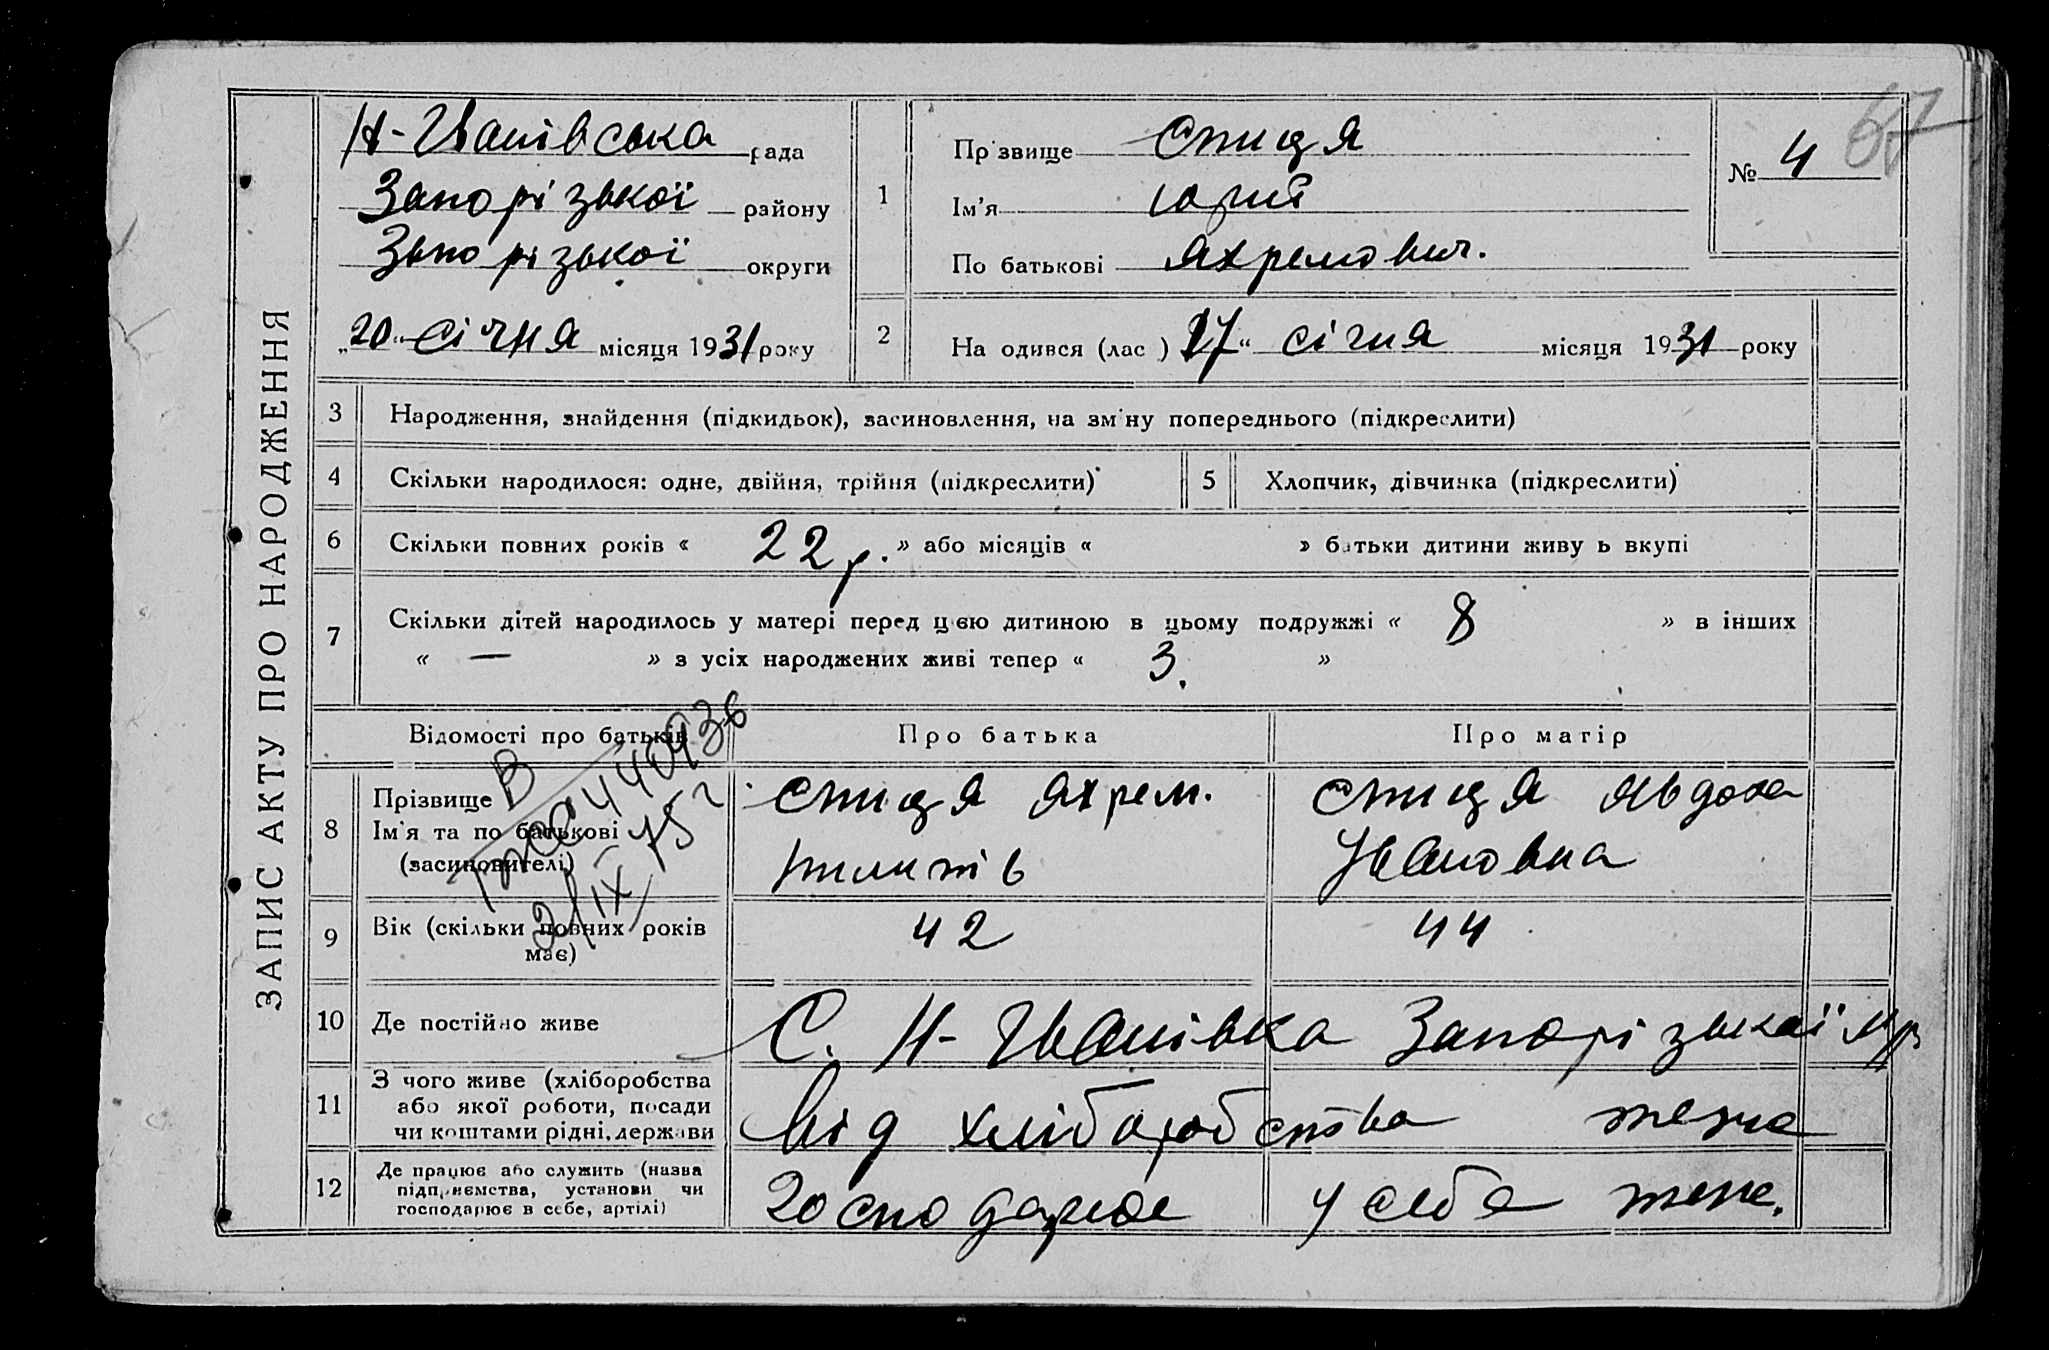 ЗАПИС АКТУ ПРО НАРОДЖЕННЯ
67
Н-Іванівська рада
Запорізької району
Запорізької округи
„20“ січня місяця 1931 року
1
Прізвище Спиця
Ім'я Юрий
По батькові Яхремович.
№ 4
2
На одився (лас ) 17“ січня місяця 1931 року
3 Народження, знайдення (підкидьок), засиновлення, на зміну попереднього (підкреслити)
4 Скільки народилося: одне, двійня, трійня (підкреслити)
5 Хлопчик, дівчинка (підкреслити)
6 Скільки повних років « 22 р. » або місяців « » батьки дитини живуть вкупі
7 Скільки дітей народилось у матері перед цією дитиною в цьому подружжі « 8 » в інших
« — » з усіх народжених живі тепер « 3. »
Відомості про батьків
Про батька
Про матір
8 Прізвище
Ім'я та по батькові
(засиновителі)
Спиця Яхрем.
Пилипів
Спиця Явдоха
Ивановна
В
440936
2/IX 75 г
9 Вік (скільки повних років має)
42
44
10 Де постійно живе
С. Н-Іванівка Запорізької
11 З чого живе (хліборобства
або якої роботи, посади
чи коштами рідні, держави
від хліборобства
12 Де працює або служить (назва
підприємства, установи чи
господарює в себе, артілі)
у себе